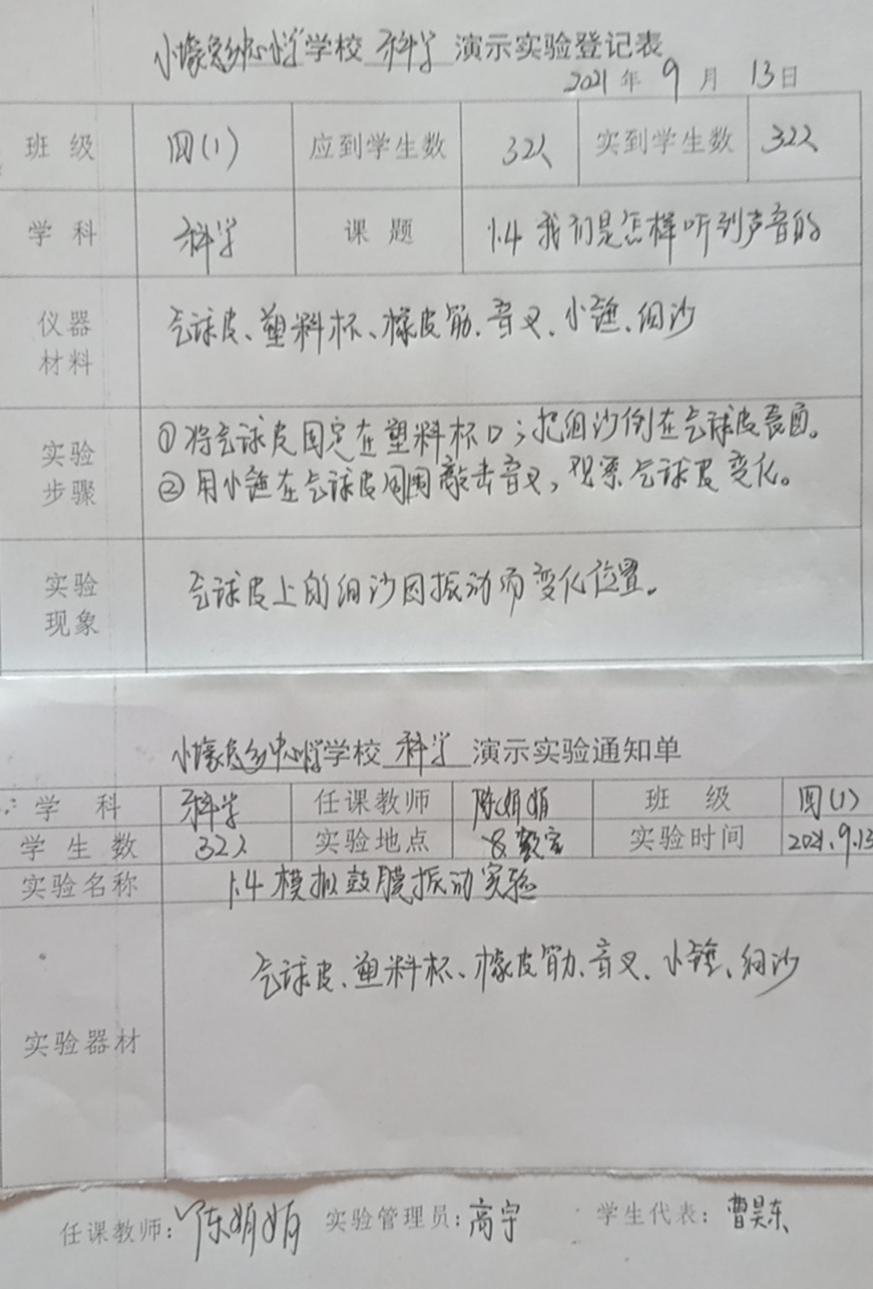 小壕兔乡中心小学学校 科学 演示实验登记表
2021 年 9 月 13 日
班 级 四(1) 应到学生数 32人 实到学生数 32人
学 科 科学 课 题 1.4 我们是怎样听到声音的
仪器
材料
气球皮、塑料杯、橡皮筋、音叉、小锤、细沙
实验
步骤
①将气球皮固定在塑料杯口;把细沙倒在气球皮表面。
②用小锤在气球皮周围敲击音叉,观察气球皮变化。
实验
现象
气球皮上的细沙因振动而变化位置。
小壕兔乡中心小学学校 科学 演示实验通知单
学 科 科学 任课教师 陈娟娟 班 级 四(1)
学生数 32人 实验地点 教室 实验时间 2021.9.13
实验名称 1.4 模拟鼓膜振动实验
实验器材 气球皮、塑料杯、橡皮筋、音叉、小锤、细沙
任课教师:陈娟娟 实验管理员:高宇 学生代表:曹昊东